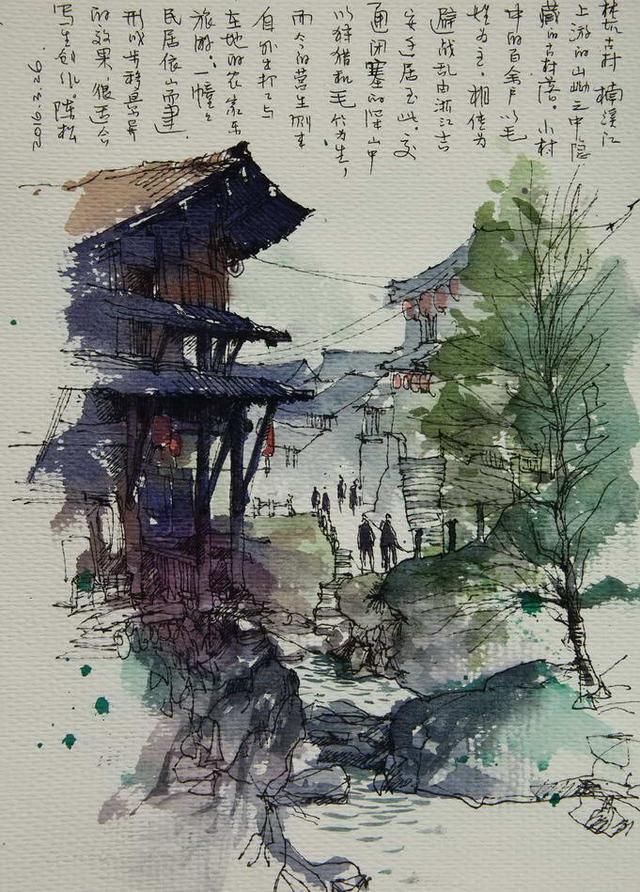 林坑古村 楠溪江
上游的山坳之中隐
藏的古村落。小村
中的百余户以毛
姓为主，相传为
避战乱由浙江吉
安迁居至此。交
通闭塞的深山中
以狩猎和毛竹为生，
而今的营生则来
自外出打工与
在地的农家乐
旅游。一幢々
民居依山而建
形成步移景异
的效果，很适合
写生创作。陈松